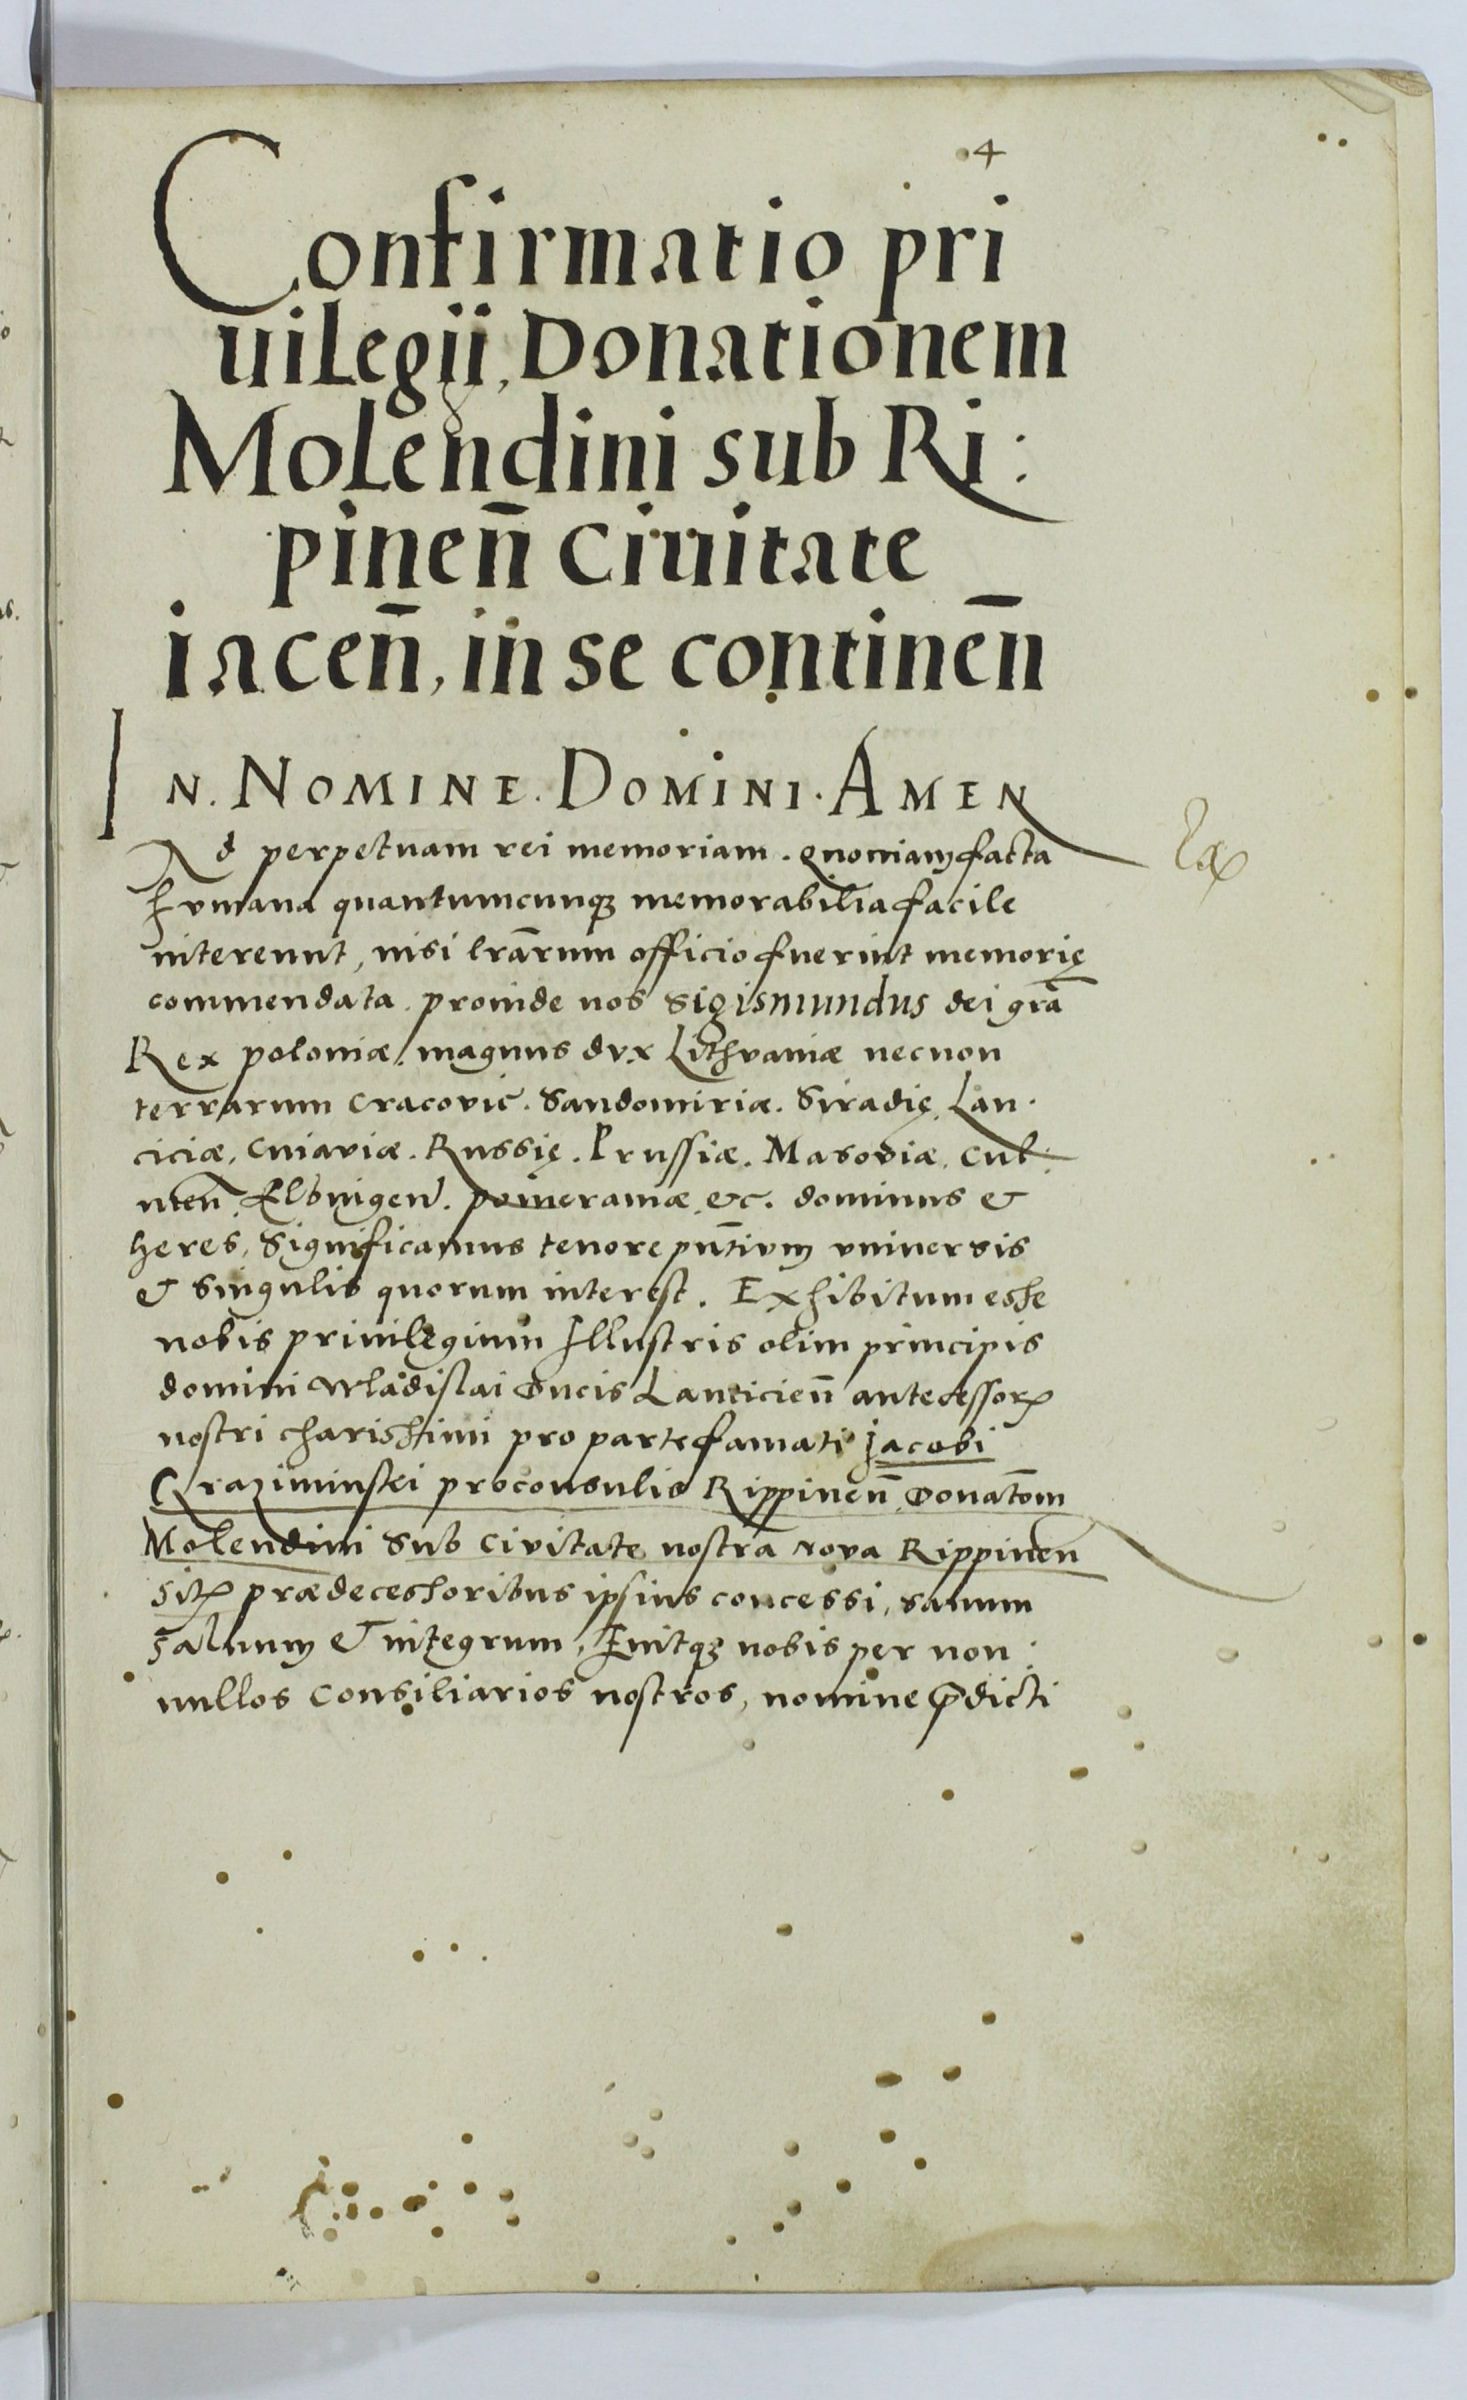 4
Confirmatio pri
uilegii, Donationem
Molendini sub Ri:
pinen̄ Ciuitate
iacen̄, in se continen̄
IN. NOMINE. DOMINI. AMEN
Ad perpetuam rei memoriam. quoniam facta
humana quantumcunqȝ memorabilia facile
intereunt, nisi lr̄arum officio fuerint memorię
commendata. proinde nos Sigismundus dei gr̄a
Rex poloniæ, magnus dux Lithvaniæ necnon
terrarum Cracovie. Sandomiriæ. Siradię. Lan:
ciciæ, Cuiaviæ. Russię. Prussiæ. Masoviæ. Cul:
men̄. Elbingen̄. pomeraniæ. &c. dominus &
heres, Significamus tenore pn̄tium vniversis
& Singulis quorum interest. Exhibitum esse
nobis privilegium Illustris olim principis
domini Wladislai Ducis Lancicien̄ antecessorꝭ
nostri charissimi pro parte famati Jacobi
Craziminskei proconsulis Rippinen̄ Donat̄om
Molendini Sub Civitate nostra Nova Rippinen
sitꝭ prædecessoribus ipsius concessi, sanum
salvum & integrum,
nobis per non:
nullos Consiliarios nostros, nomine p̄dicti